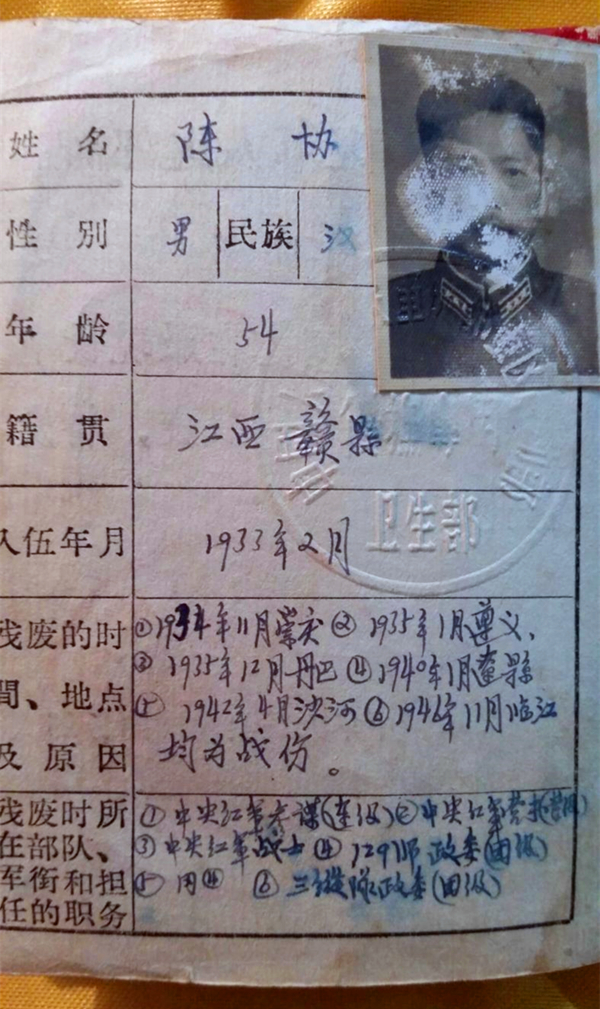 姓名 陈协
性别 男 民族 汉
年龄 54
籍贯 江西 赣縣
入伍年月 1933年2月
残废的时 ①1934年11月崇 ② 1935年1月遵义、
間、地点 ③ 1935年12月丹巴 ④1940年1月 縣
⑤ 1942年4月沙河 ⑥1946年11月临江
及原因 均为战伤。
残废时所 ①中央红军参谋(连级)②中央红军营 (营级)
在部队、 ③中央红军战士 ④ 129师政委(团级)
军衔和担 ⑤ 同④ ⑥ 三纵队政委(团级)
任的职务
卫生部